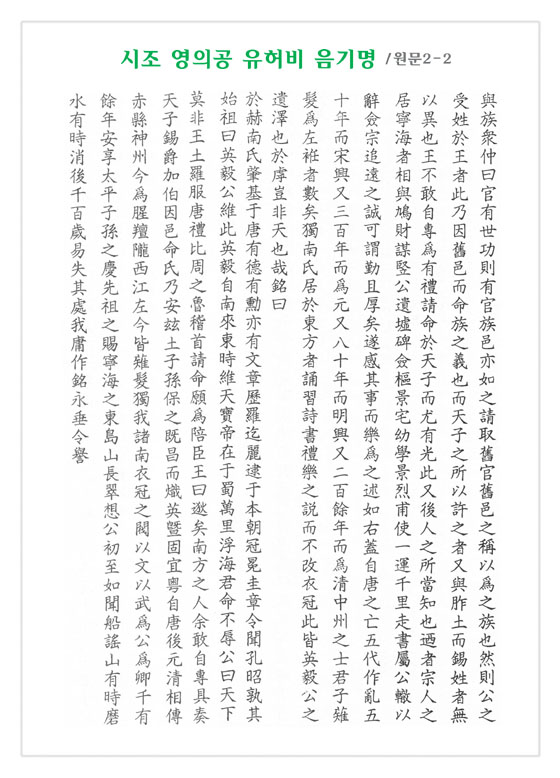 시조 영의공 유허비 음기명 /원문2-2
與族衆仲曰官有世功則有官族邑亦如之請取舊官舊邑之稱以爲之族也然則公之
受姓於王者此乃因舊邑而命族之義也而天子之所以許之者又與胙土而錫姓者無
以異也王不敢自專爲有禮請命於天子而尤有光此又後人之所當知也迺者宗人之
居寧海者相與鳩財謀竪公遺墟碑僉樞景宅幼學景烈甫使一運千里走書屬公轍以
辭僉宗追遠之誠可謂勤且厚矣遂感其事而樂爲之述如右蓋自唐之亡五代作亂五
十年而宋興又三百年而爲元又八十年而明興又二百餘年而爲清中州之士君子薙
髮爲左袵者數矣獨南氏居於東方者誦習詩書禮樂之說而不改衣冠此皆英毅公之
遺澤也於虖豈非天也哉銘曰
於赫南氏肇基于唐有德有勳亦有文章歷羅迄麗逮于本朝冠冕圭章令聞孔昭孰其
始祖曰英毅公維此英毅自南來東時維天寶帝在于蜀萬里浮海君命不辱公曰天下
莫非王土羅服唐禮比周之魯稽首請命願爲陪臣王曰邀矣南方之人余敢自專具奏
天子錫爵加伯因邑命氏乃安玆土子孫保之既昌而熾英曁固宜粤自唐後元清相傳
赤縣神州今爲腥羶隴西江左今皆薙髮獨我諸南衣冠之閥以文以武爲公爲卿千有
餘年安享太平子孫之慶先祖之賜寧海之東島山長翠想公初至如聞船謠山有時磨
水有時消後千百歲易失其處我庸作銘永垂令譽